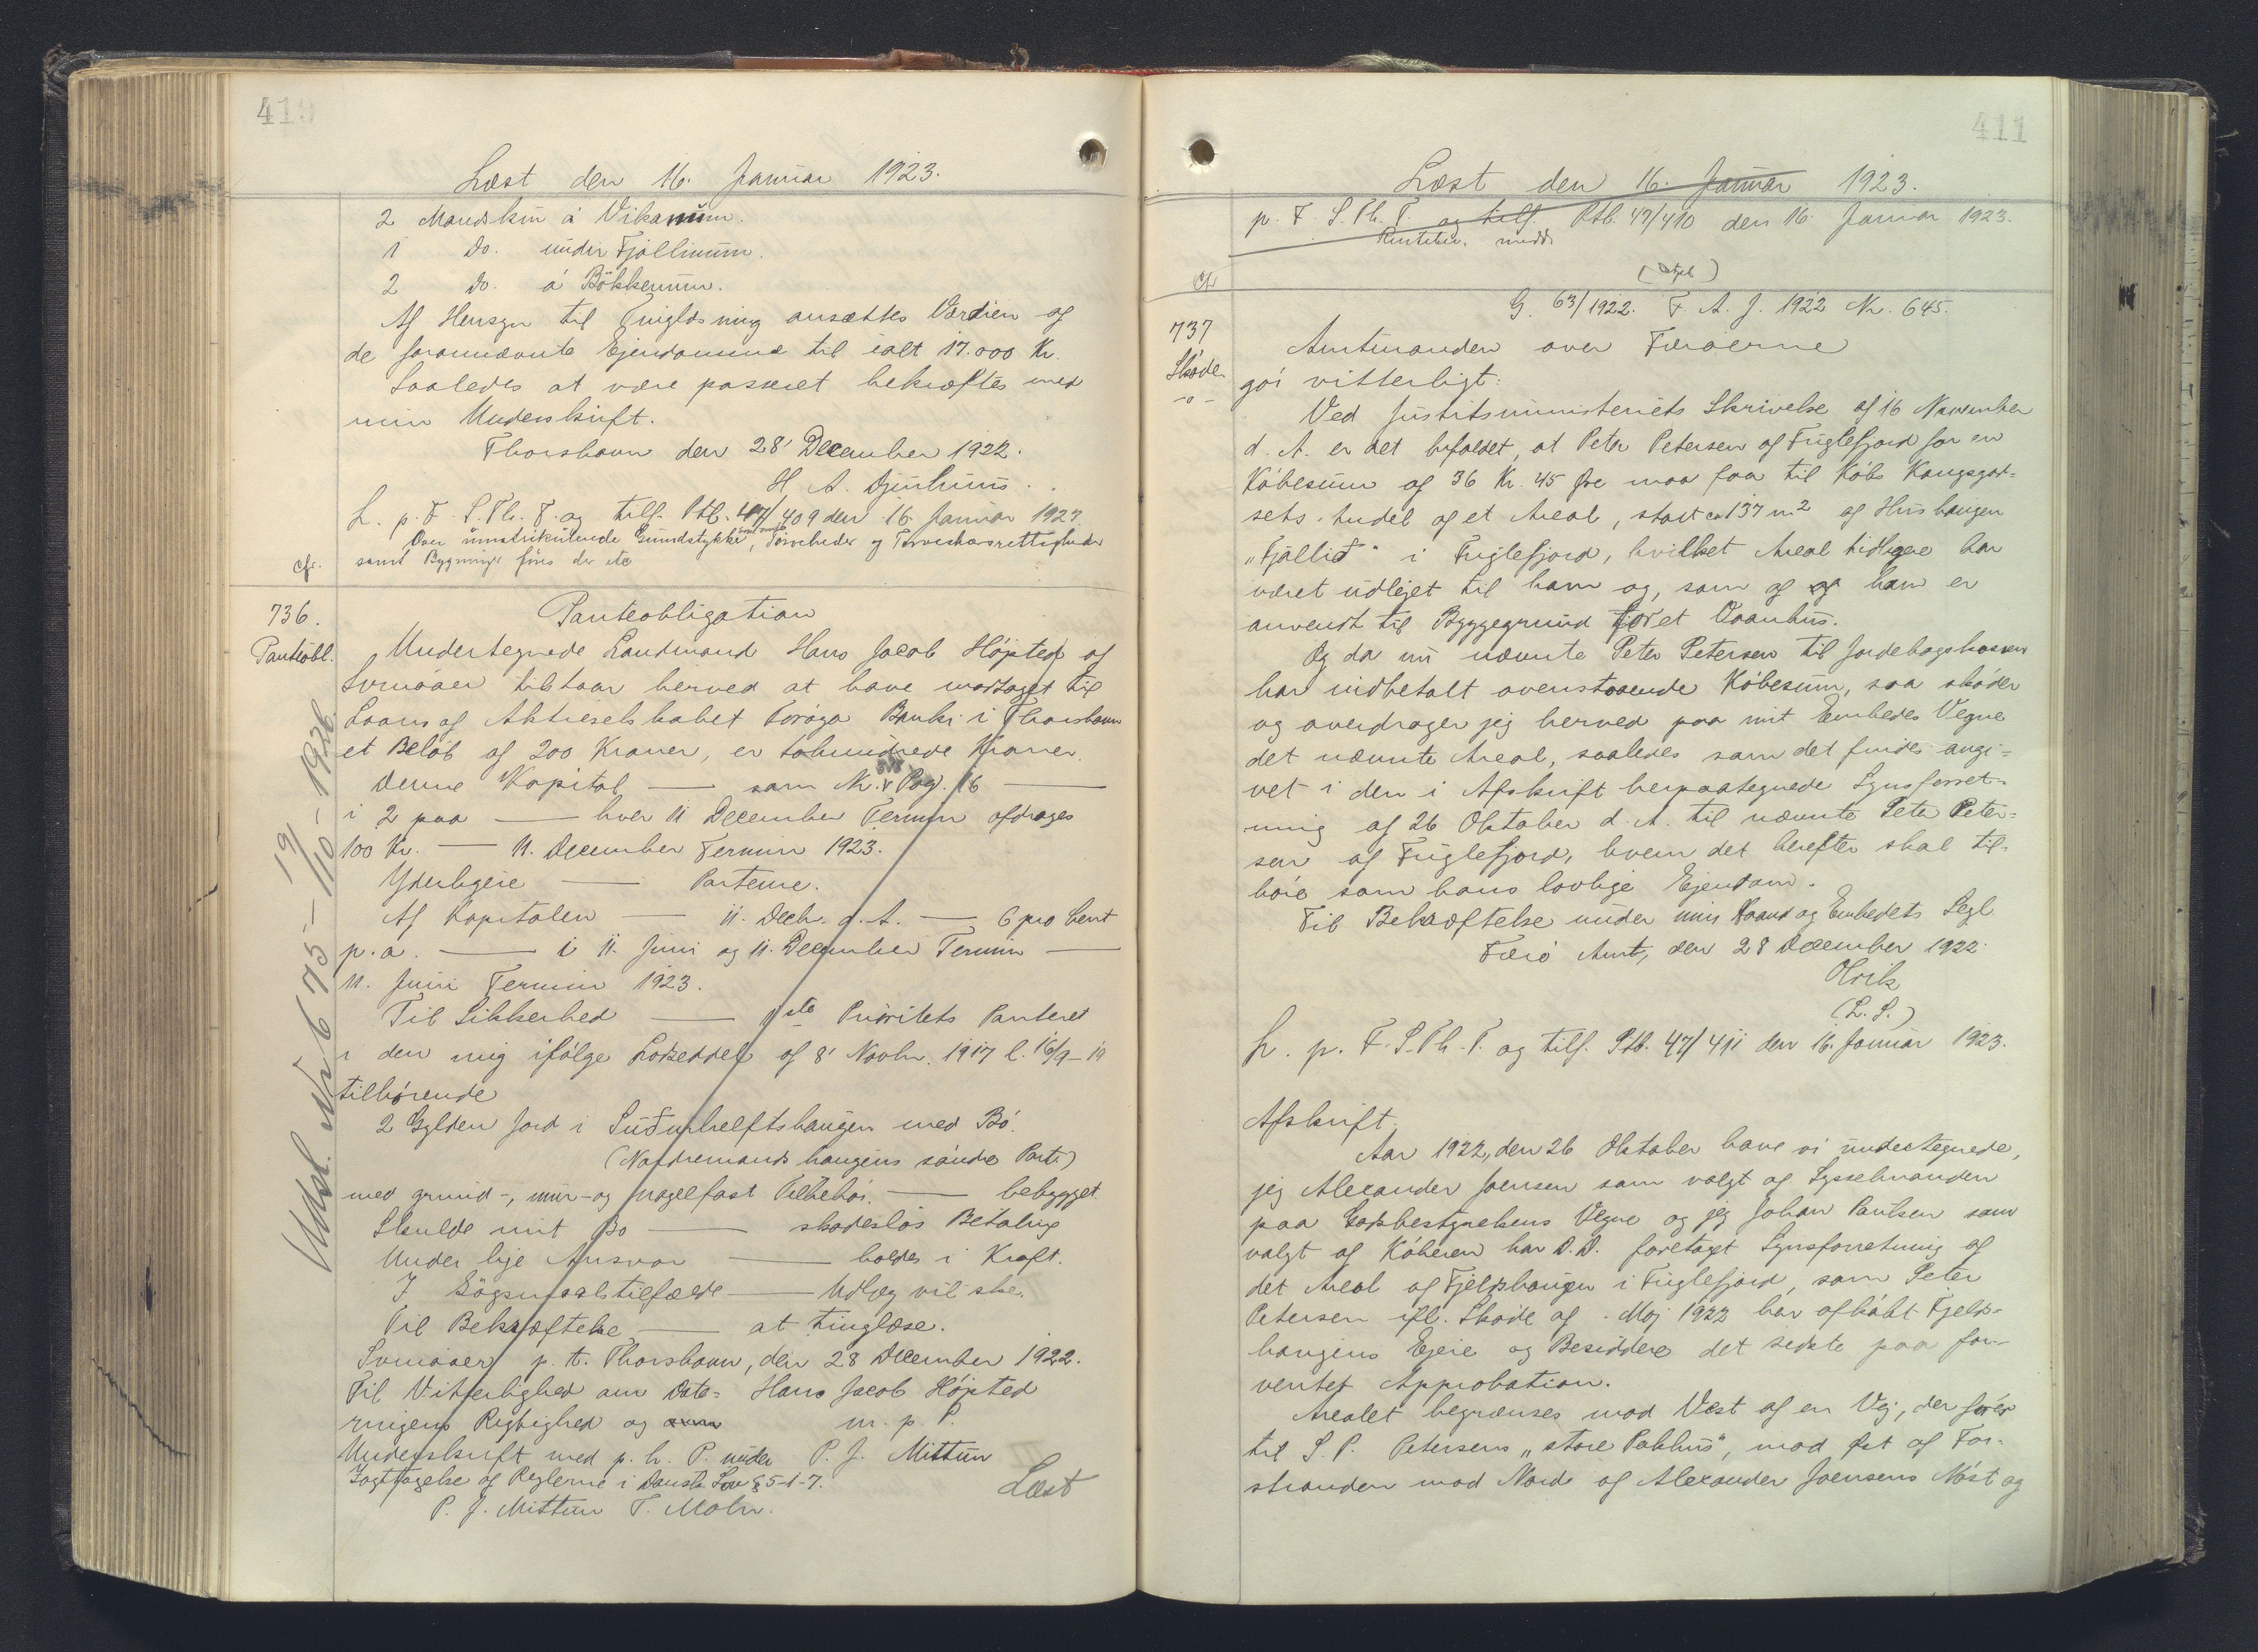 410
Læst den 16. Januar 1923.
2 Mandskin á Vikanum.
1 Do. undir Fjøllinum.
2 Do. á Bökkenum.
Af Hensyn til Tinglæsning ansættes Værdien af
de forannævnte Ejendomme til ialt 17.000 Kr.
Saaledes at være passeret bekræftes med
min Underskrift.
Thorshavn den 28' December 1922.
H A. Djurhuus.
L. p. F. S. Th. T. og tilf. Ptb. 47/409 den 16. Januar 1923.
Over umatrikulerede Grundstykker, Tørveheder og Tørveskursrettigheder
samt Bygninger føres der etc
cfr.
736.
Panteobl.
Panteobligation
Undertegnede Landmand Hans Jacob Höjsted af
Svinóaer tilstaar herved at have modtaget til
Laans af Aktieselskabet Føroya Banki i Thorshavn
et Beløb af 200 Kroner, er tohundrede Kroner.
Denne Kapital — som Nr. Pag. 16 —
i 2 paa — hver 11 December Termin afdrages
100 Kr. — 11. December Termin 1923.
Yderligere — Parterne.
Af Kapitalen — 11. Decbr. d. A. — 6 pro Cent
p. a. — i 11. Juni og 11. December Termin —
11. Juni Termin 1923.
Til Sikkerhed — 1ste Prioritets Panteret
i den mig ifölge Lodseddel af 8' Novbr. 1917 l. 16/9-19
tilhørende
2 Gylden Jord i Suðurhelftshaugen med Bö.
(Nordremands haugens söndre Part.)
med grund-, mur- og nagelfast Tilbehör. — bebygget
Skulde mit Bo — skadeslös Betaling
Under lige Ansvar — holdes i Kraft.
I Sögsmaalstilfælde — Udlæg vil ske.
Til Bekræftelse — at tinglæse.
Svinóaer p. t. Thorshavn, den 28 December 1922.
Til Vitterlighed om Date= Hans Jacob Höjsted
ringens Rigtighed og m. p. P.
Underskrift med p. h. P. under P. J. Mittun
Iagttagelse af Reglerne i Danske Lov § 5-1-7.
P. J. Mittun T. Mohr.
Læst
Udsl. Nr. 675 - 19/10 - 1926.
411
Læst den 16. Januar 1923.
p. F. S. Th. T. og tilf. Ptb. 47/410 den 16. Januar 1923.
cfr
G. 63/1922. F. A. J. 1922 Nr. 645.
737
Sköde
-o-
Amtmanden over Færöerne
gör vitterligt:
Ved Justitsministeriets Skrivelse af 16 November
d. A. er det befalet, at Peter Petersen af Fuglefjord for en
Köbesum af 36 Kr. 45 Øre maa faa til Köbs Kongsgod=
sets Andel af et Areal, stort ca 137 m² af Hushaugen
„Fjallið" i Fuglefjord, hvilket Areal tidligere har
været udlejet til ham og, som af ham er
anvendt til Byggegrund for et Vaanhus.
Og da nu nævnte Peter Petersen til Jordebogskassen
har indbetalt ovenstaaende Köbesum, saa sköder
og overdrager jeg herved paa mit Embedes Vegne
det nævnte Areal, saaledes som det findes angi=
vet i den i Afskrift herpaategnede Synsforret=
ning af 26 Oktober d. A. til nævnte Peter Peter=
sen af Fuglefjord, hvem det herefter skal til=
höre som hans lovlige Ejendom.
Til Bekræftelse under min Haand og Embedets Segl.
Færö Amt, den 28 December 1922.
Olrik
(L. S.)
L. p. F. S. Th. T. og tilf. Ptb. 47/411 den 16. Januar 1923.
Afskrift.
Aar 1922, den 26 Oktober have vi undertegnede,
jeg Alexander Joensen som valgt af Sysselmanden
paa Godsbestyrelsens Vegne og jeg Johan Poulsen som
valgt af Köberen har D. D. foretaget Synsforretning af
det Areal af Fjeldshaugen i Fuglefjord, som Peter
Petersen ifl. Sköde af . Maj 1922 har afköbt Fjelds=
haugens Ejere og Besiddere det sidste paa for=
ventet Approbation.
Arealet begrænses mod Vest af en Vej, der förer
til S. P. Petersens „store Pakhus", mod Øst af For=
stranden mod Nord af Alexander Joensens Nöst og